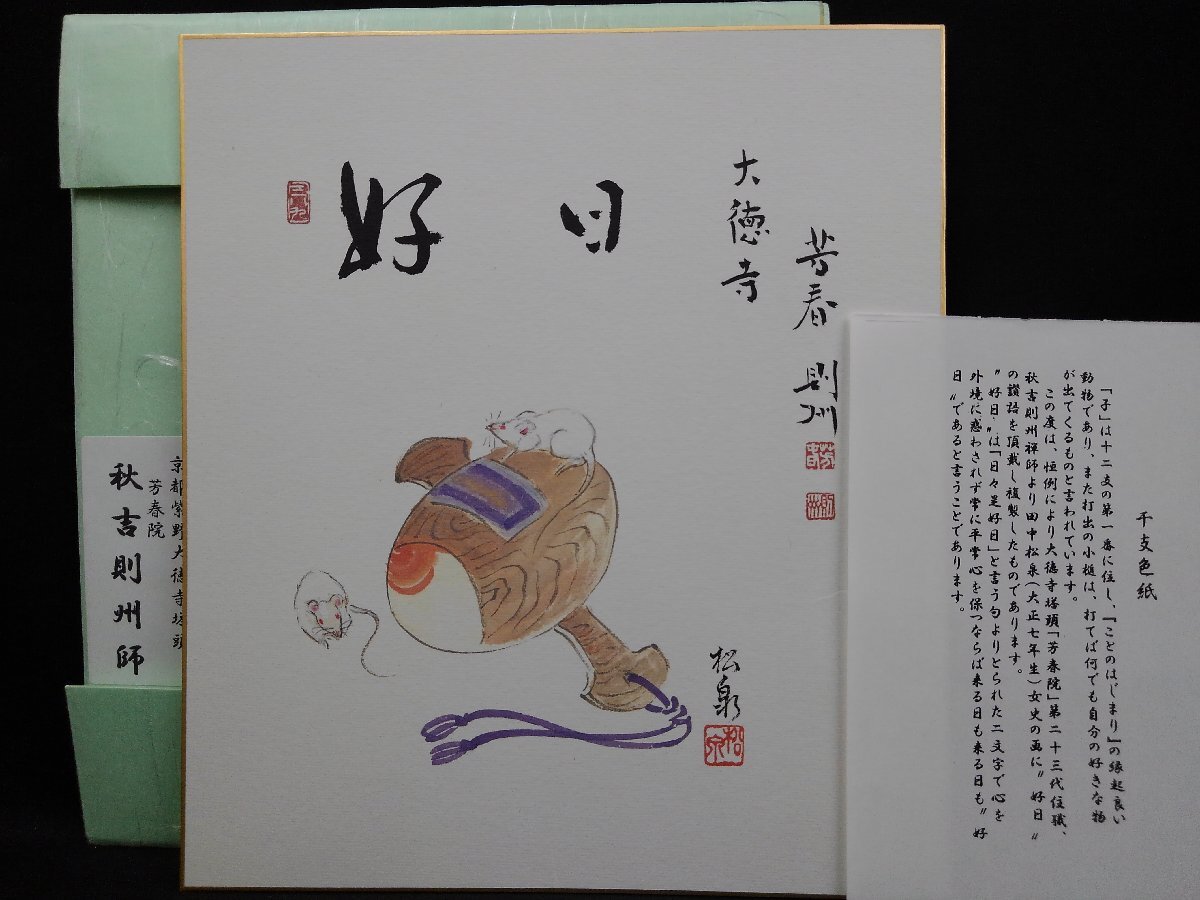 好日
大徳寺
芳春 則州
松泉
松泉
京都紫野大徳寺塔頭
芳春院
秋吉則州師
干支色紙
「子」は十二支の第一番に位し、「ことのはじまり」の縁起良い
動物であり、また打出の小槌は、打てば何でも自分の好きな物
が出てくるものと言われています。
この度は、恒例により大徳寺塔頭「芳春院」第二十三代住職、
秋吉則州禅師より田中松泉(大正七年生)女史の画に〝好日〟
の讃語を頂戴し複製したものであります。
〝好日〟は「日々是好日」と言う句よりとられた二文字で心を
外境に惑わされず常に平常心を保つならば来る日も来る日も〝好
日〟であると言うことであります。